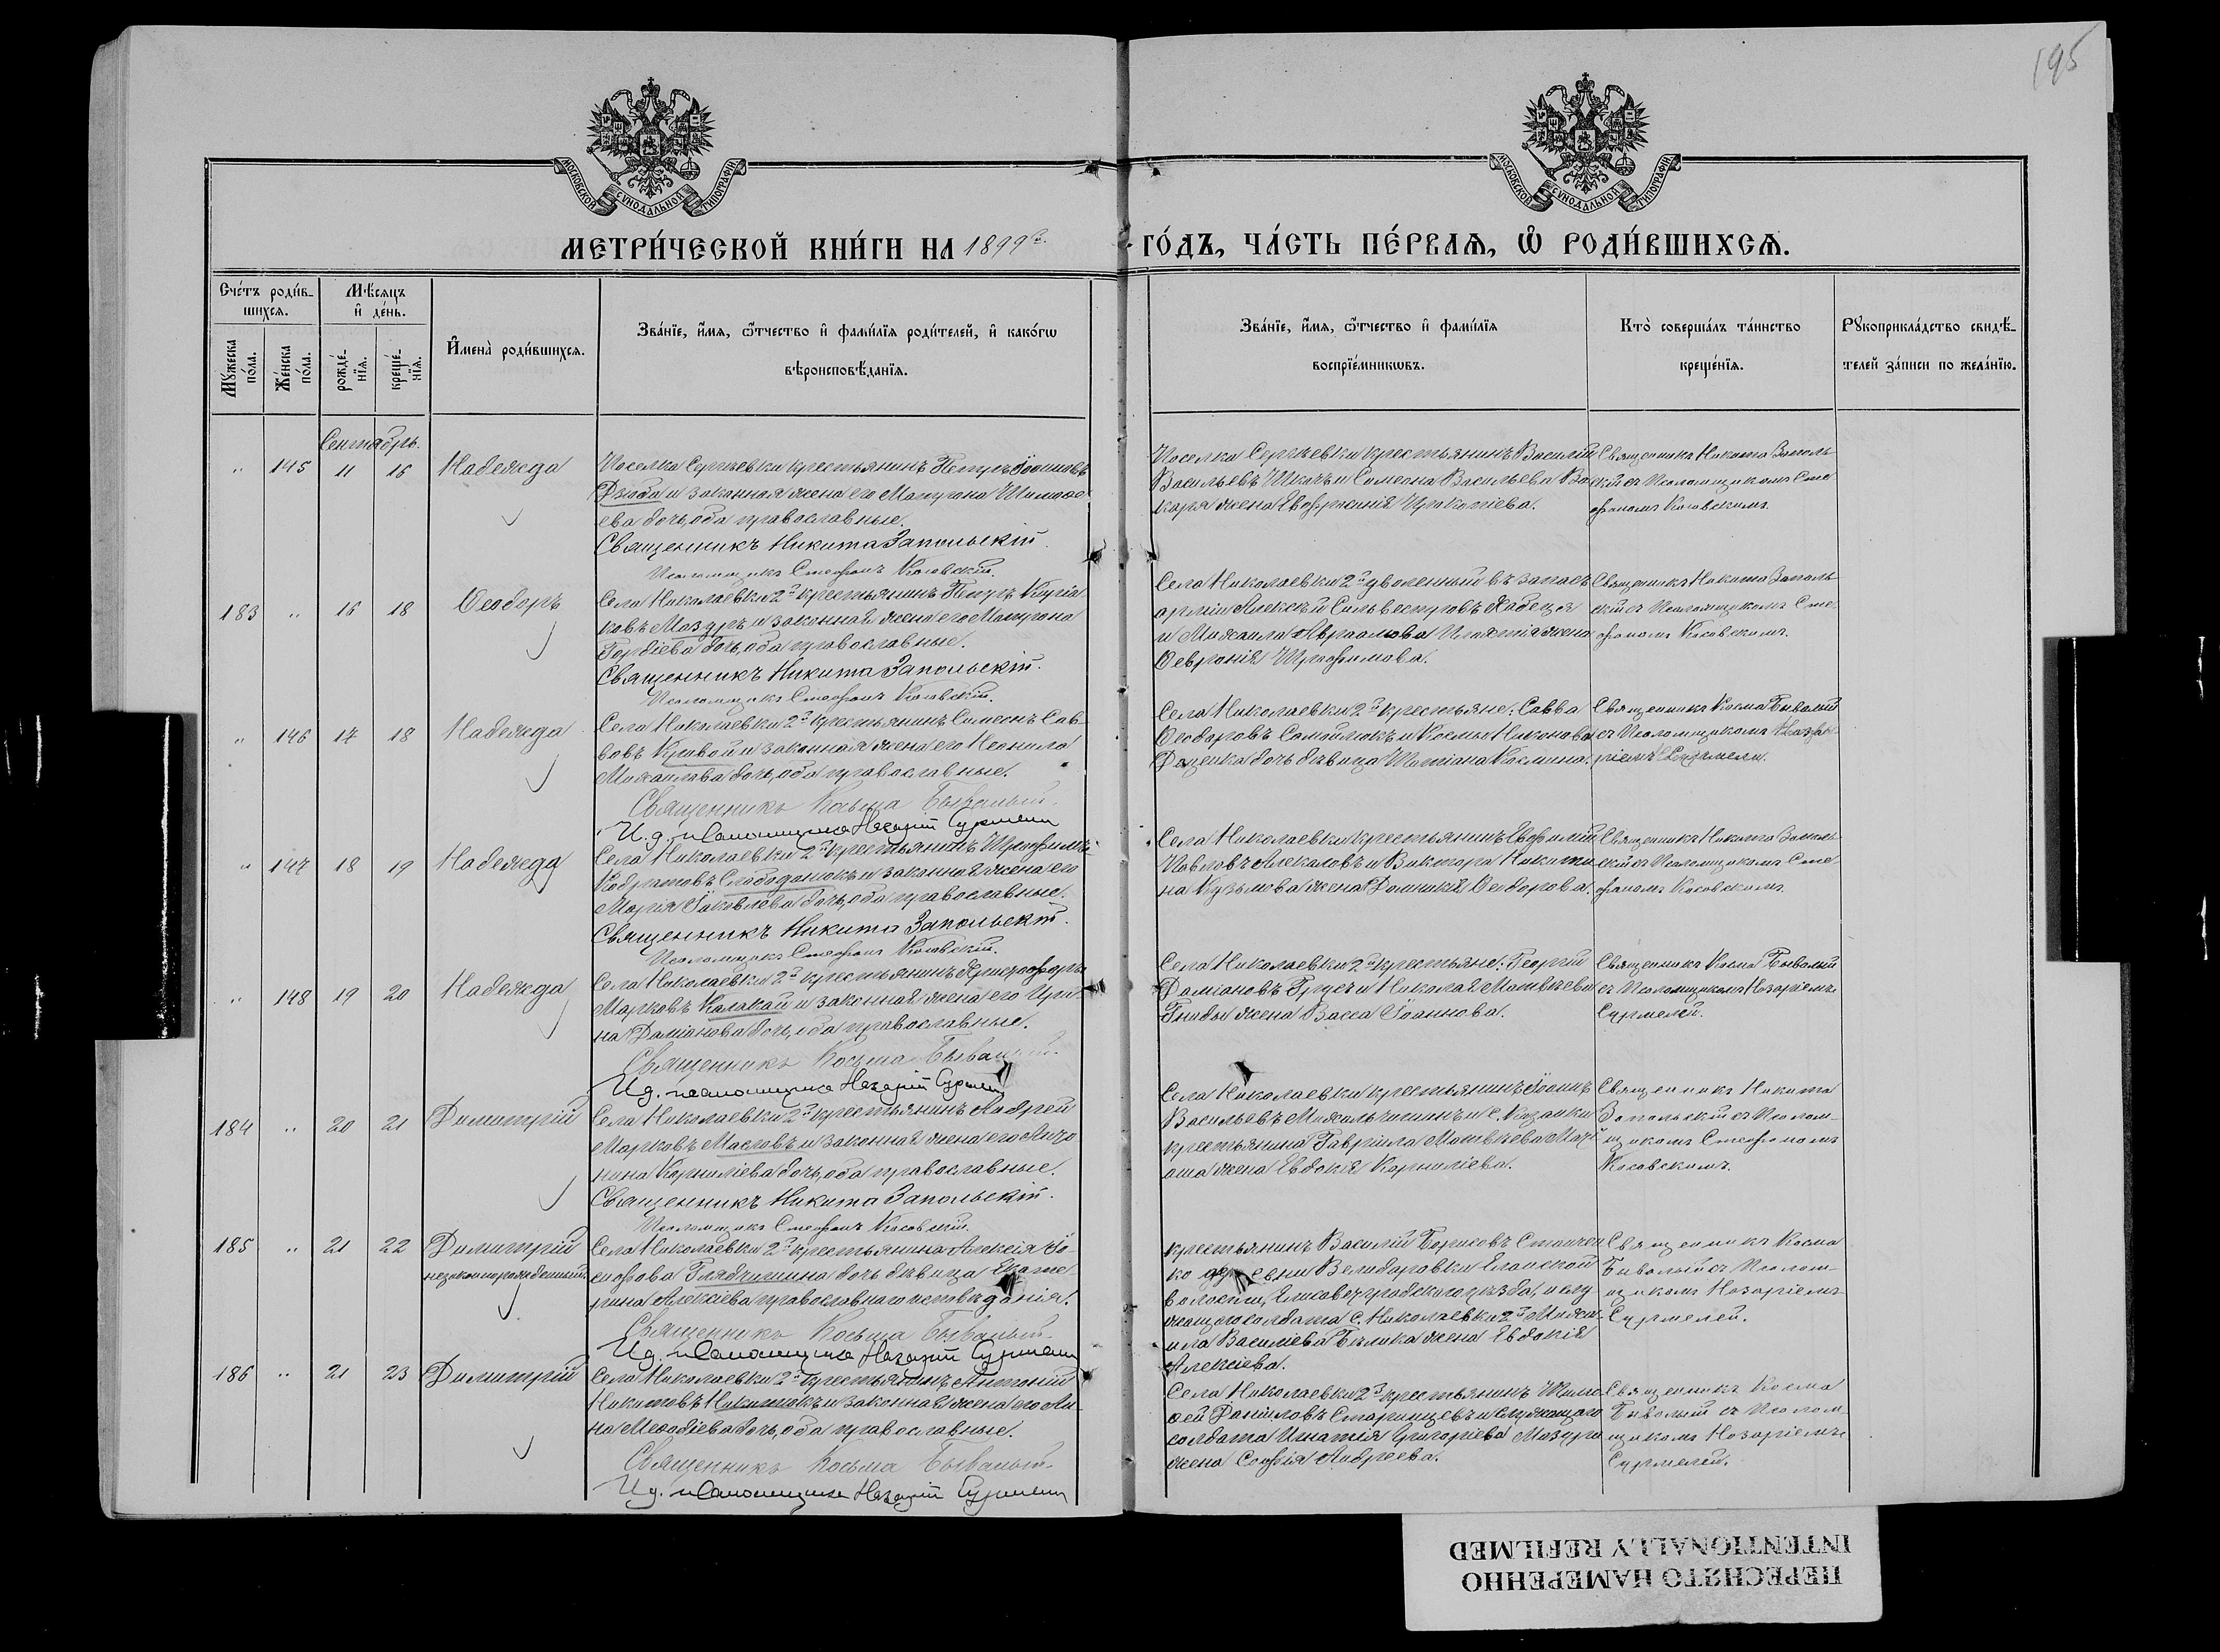 195
МОСКОВСКОЙ СУНОДАЛЬНОЙ ТИПОГРАФІИ
МОСКОВСКОЙ СУНОДАЛЬНОЙ ТИПОГРАФІИ
МЕТРИ́ЧЕСКОЙ КНИ́ГИ НА 1899й
ГО́ДЪ, ЧА́СТЬ ПЕ́РВАѦ, Ѡ҆ РОДИ́ВШИХСѦ.
Сче́тъ роди́в-
шихсѧ.
Мꙋ́жеска по́ла.
Же́нска по́ла.
Мѣ́сѧцъ
и҆ де́нь.
рожде́-нїѧ.
креще́-нїѧ.
И҆мена̀ роди́вшихсѧ.
Зва́нїе, и҆́мѧ, ѻ҆́тчество и҆ фами́лїѧ роди́телей, и҆ како́гѡ
вѣроисповѣ́данїѧ.
Зва́нїе, и҆́мѧ, ѻ҆́тчество и҆ фами́лїѧ
воспрїе́мникѡвъ.
Кто̀ соверша́лъ та́инство
креще́нїѧ.
Рꙋкоприкла́дство свидѣ́-
телей за́писи по жела́нїю.
Сентябрь.
" 145 11 16 Надежда
Поселка Сергѣевки крестьянинъ Петръ Іоанновъ
Дзюба и законная жена его Матрона Тимоѳе
ева дочь, оба православные.
Священникъ Никита Запольскій.
Псаломщикъ Стефанъ Косовскій.
Поселка Сергѣевки крестьянинъ Василій
Васильевъ и Симеона Васильева
жена Евфросинія Прокопіева.
Священникъ Никита Заполь
скій съ Псаломщикомъ Сте
фаномъ Косовскимъ.
183 " 16 18 Ѳеодоръ
Села Николаевки 2й крестьянинъ Петръ Киріа
ковъ Мазуръ и законная жена его Матрона
Гордіева дочь, оба православные.
Священникъ Никита Запольскій.
Псаломщикъ Стефанъ Косовскій.
Села Николаевки 2й уволенный въ запасъ
арміи Алексѣй Сильвестровъ
и Михаила Авраамова жена
Ѳевронія Трофимова.
Священникъ Никита Заполь
скій съ Псаломщикомъ Сте
фаномъ Косовскимъ.
" 146 17 18 Надежда
Села Николаевки 2й крестьянинъ Симеонъ Сав-
вовъ Кривой и законная жена его Неонила
Михаилова дочь, оба православные.
Священникъ Косьма Бывалый.
И. д. псаломщика Назарій Сурмели
Села Николаевки 2й крестьяне: Савва
Ѳеодоровъ Самойлюкъ и Космы Никонова
Доценка дочь дѣвица Татіана Космина.
Священникъ Косма Бывалый
съ Псаломщикомъ Наза-
ріемъ Сурмели.
" 147 18 19 Надежда
Села Николаевки 2й крестьянинъ Трофимъ
Кодратовъ Слободанюкъ и законная жена его
Марія Іаковлева дочь, оба православные.
Священникъ Никита Запольскій.
Псаломщикъ Стефанъ Косовскій.
Села Николаевки крестьянинъ Евфимій
Павловъ и Виктора Никити
на Кузьмова жена Домникія Ѳеодорова.
Священникъ Никита Заполь-
скій съ Псаломщикомъ Сте
фаномъ Косовскимъ.
" 148 19 20 Надежда
Села Николаевки 2й крестьянинъ Христофоръ
Марковъ Колакай и законная жена его Ири-
на Даміанова дочь, оба православные.
Священникъ Косьма Бывалый.
И. д. псаломщика Назарій Сурмели
Села Николаевки 2й крестьяне: Георгій
Даміановъ и Николая Матвѣева
Гниды жена Васса Іоаннова.
Священникъ Косма Бывалый
съ Псаломщикомъ Назаріемъ
Сурмелей.
184 " 20 21 Димитрій
Села Николаевки 2й крестьянинъ Андрей
Марковъ Масловъ и законная жена его Анто
нина Корниліева дочь, оба православные.
Священникъ Никита Запольскій.
Псаломщикъ Стефанъ Косовскій.
Села Николаевки крестьянинъ Іоаннъ
Васильевъ Михальчишинъ и с. Казанки
крестьянина Гавріила Матвѣева
жена Евдокія Корниліева.
Священникъ Никита
Запольскій съ Псалом-
щикомъ Стефаномъ
Косовскимъ.
185 " 21 22 Димитрій
незаконнорожденный.
Села Николаевки 2й крестьянина Алексія Іо-
сифова дочь дѣвица Екате-
рина Алексіева православнаго исповѣданія.
Священникъ Косьма Бывалый.
И. д. псаломщика Назарій Сурмели
крестьянинъ Василій Борисовъ
деревни Еланской
волости, Елисаветградскаго уѣзда, и слу
жащаго солдата с. Николаевки 2й Миха-
ила Василіева Бѣлика жена Евдокія
Алексіева.
Священникъ Косма
Бывалый съ Псалом-
щикомъ Назаріемъ
Сурмелей.
186 " 21 23 Димитрій
Села Николаевки 2й крестьянинъ Антоній
Никитовъ Никитюкъ и законная жена его Ан-
на Меѳодіева дочь, оба православные.
Священникъ Косьма Бывалый.
И. д. псаломщика Назарій Сурмели
Села Николаевки 2й крестьянинъ Тимо
ѳей Даніиловъ Старинцевъ и служащаго
солдата Игнатія Григоріева Мазура
жена Софія Андреева.
Священникъ Косма
Бывалый съ Псалом-
щикомъ Назаріемъ
Сурмелей.
ПЕРЕСНЯТО НАМЕРЕННО
INTENTIONALLY REFILMED